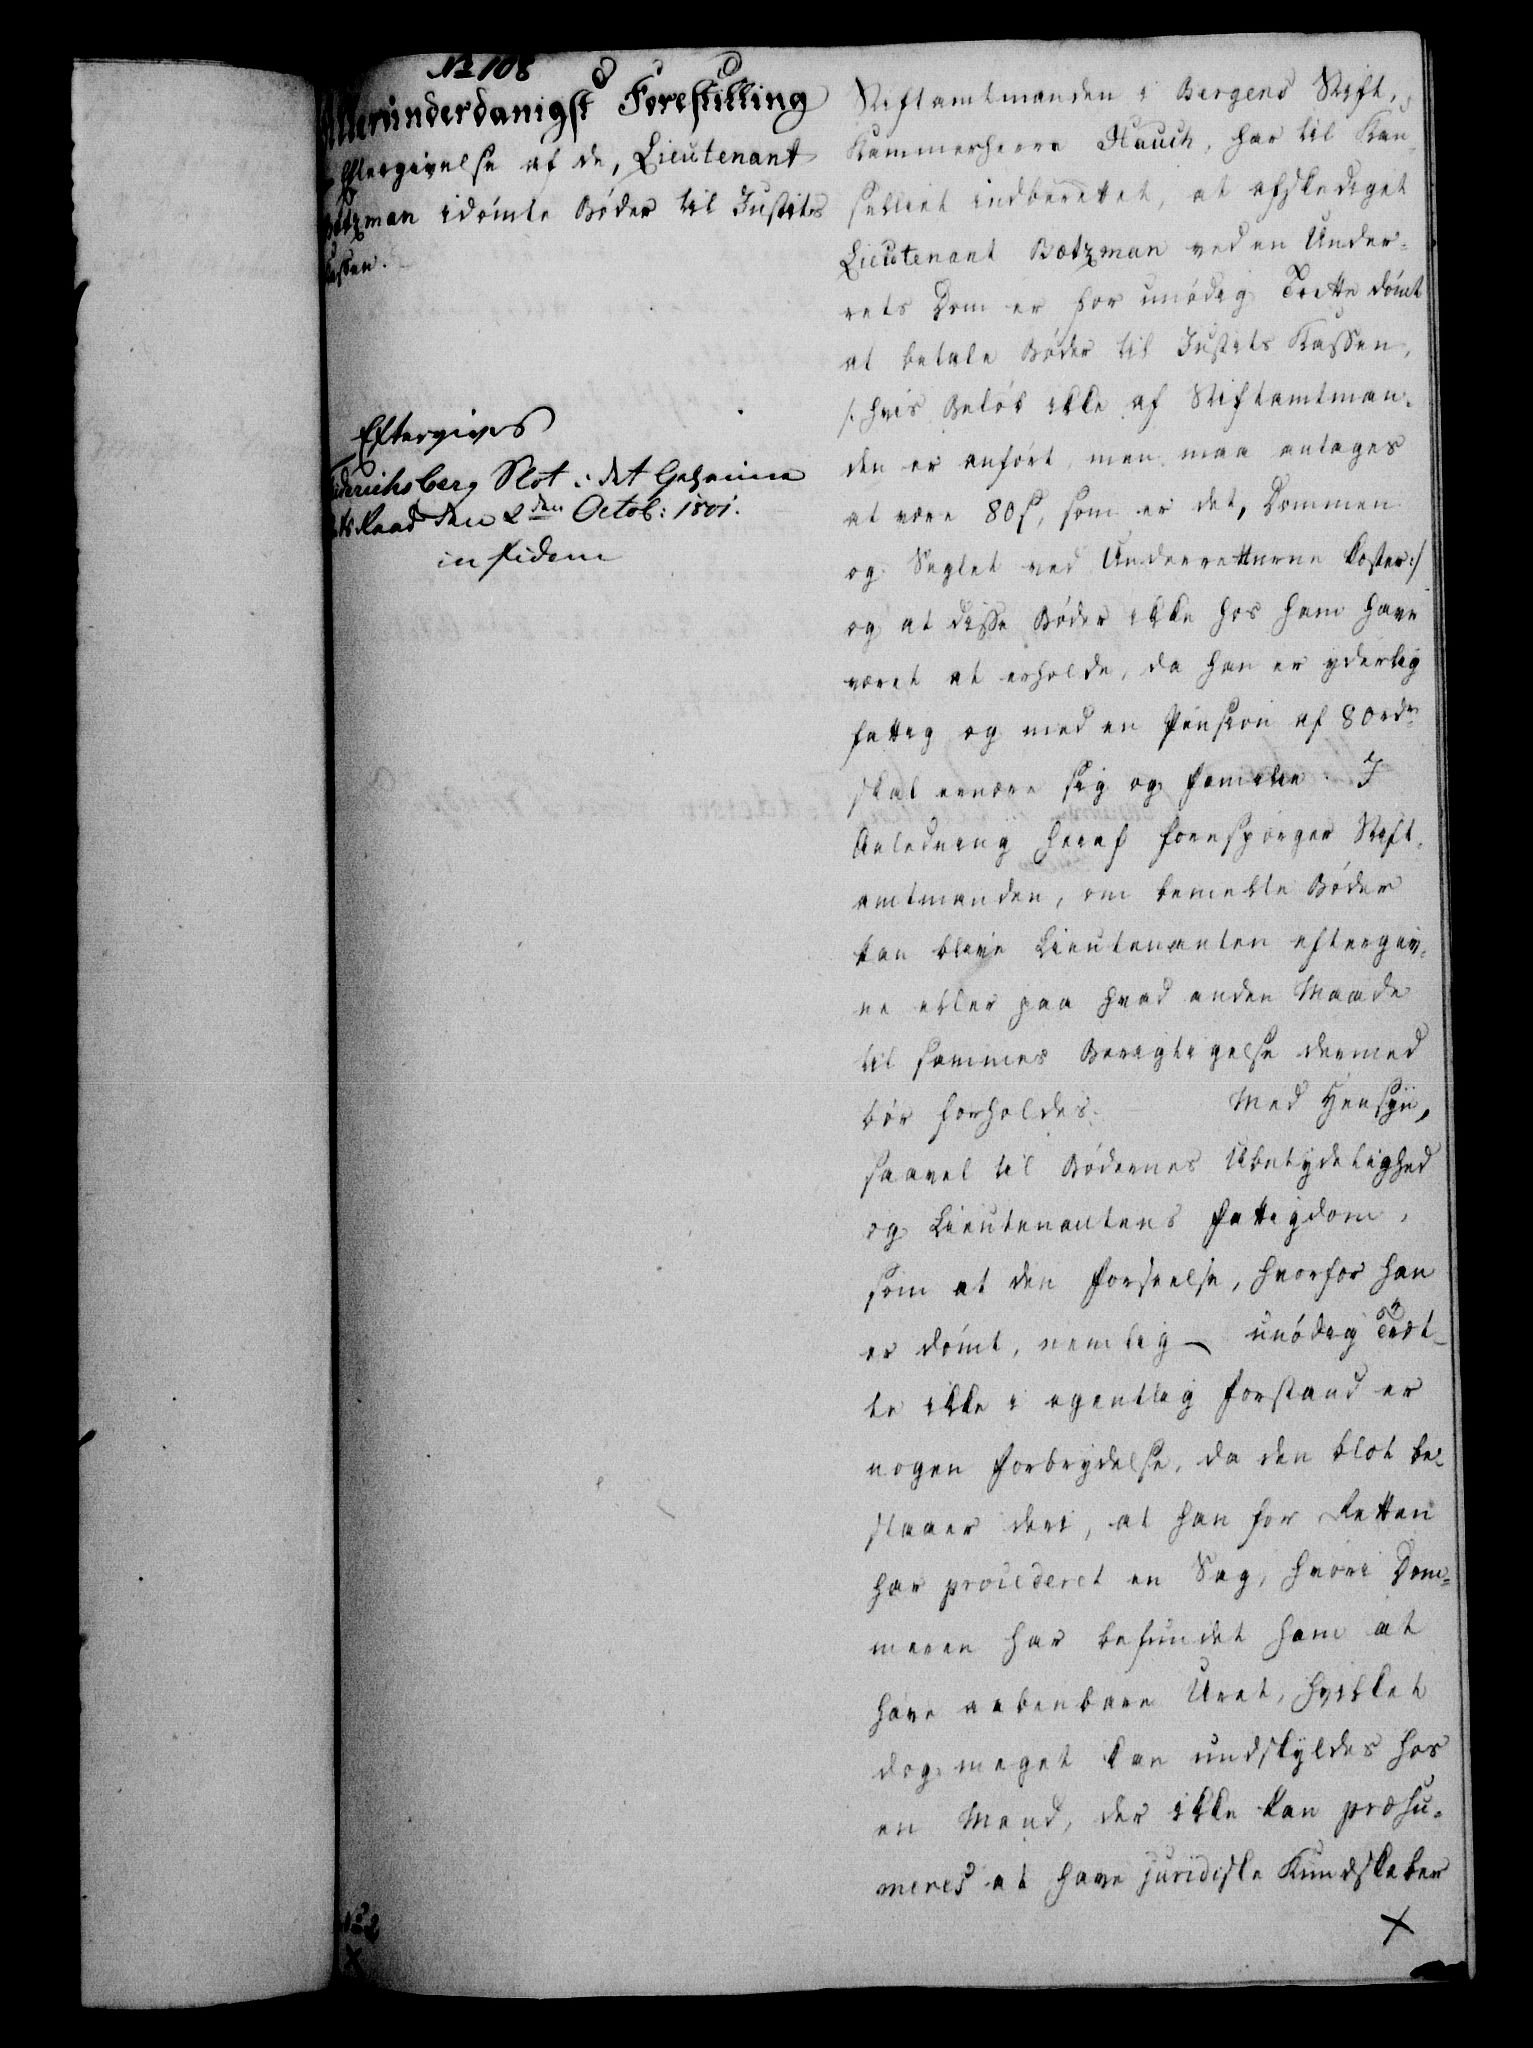 No 108
Allerunderdanigst Forestilling
Eftergivelse af de, Lieutenant
Bøtzman idömte Böder til Justits
Kassen.
Eftergives
Friderichsberg Slot i det Geheime
Stats Raad den 2den Octob: 1801.
in fidem
Stiftamtmanden i Bergens Stift,
Kammerherre Hauch, har til Kan-
selliet indberettet, at afskediget
Lieutenant Bøtzman ved en Under-
rets Dom er for unödig Trette dömt
at betale Böder til Justits Kassen,
/: hvis Belöb ikke af Stiftamtman-
den er anfört, men maa antages
at være 80 s, som er det, Dommen
og Seglet ved Underretterne koster:/
og at disse Böder ikke hos ham have
været at erholde, da han er yderlig
fattig og med en Pension af 80 rdr
skal ernære sig og familie. I
Anledning heraf forespörger Stift-
amtmanden, om bemeldte Böder
kan blive Lieutenanten eftergiv-
ne eller paa hvad anden Maade
til sammes Berigtigelse dermed
bör forholdes. Med Hensyn,
saavel til Bödernes Ubetydelighed
og Lieutenantens fattigdom,
som at den forseelse, hvorfor han
er dömt, nemlig – unödig Træt-
te ikke i egentlig forstand er
nogen forbrydelse, da den blot be-
staaer deri, at han for Retten
har proscederet en Sag, hvori Dom-
meren har befundet ham at
have aabenbare Uret, hvilket
dog meget kan undskyldes hos
en Mand, der ikke kan præsu-
meres at have juridiske Kundskaber
No 2